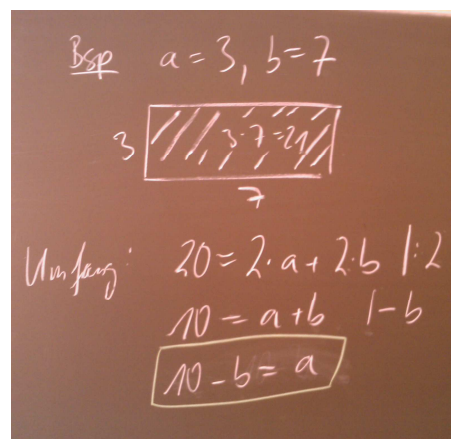 Bsp a = 3, b = 7
3 3·7=21
7
Umfang: 20 = 2·a + 2·b |:2
10 = a + b |-b
10 - b = a